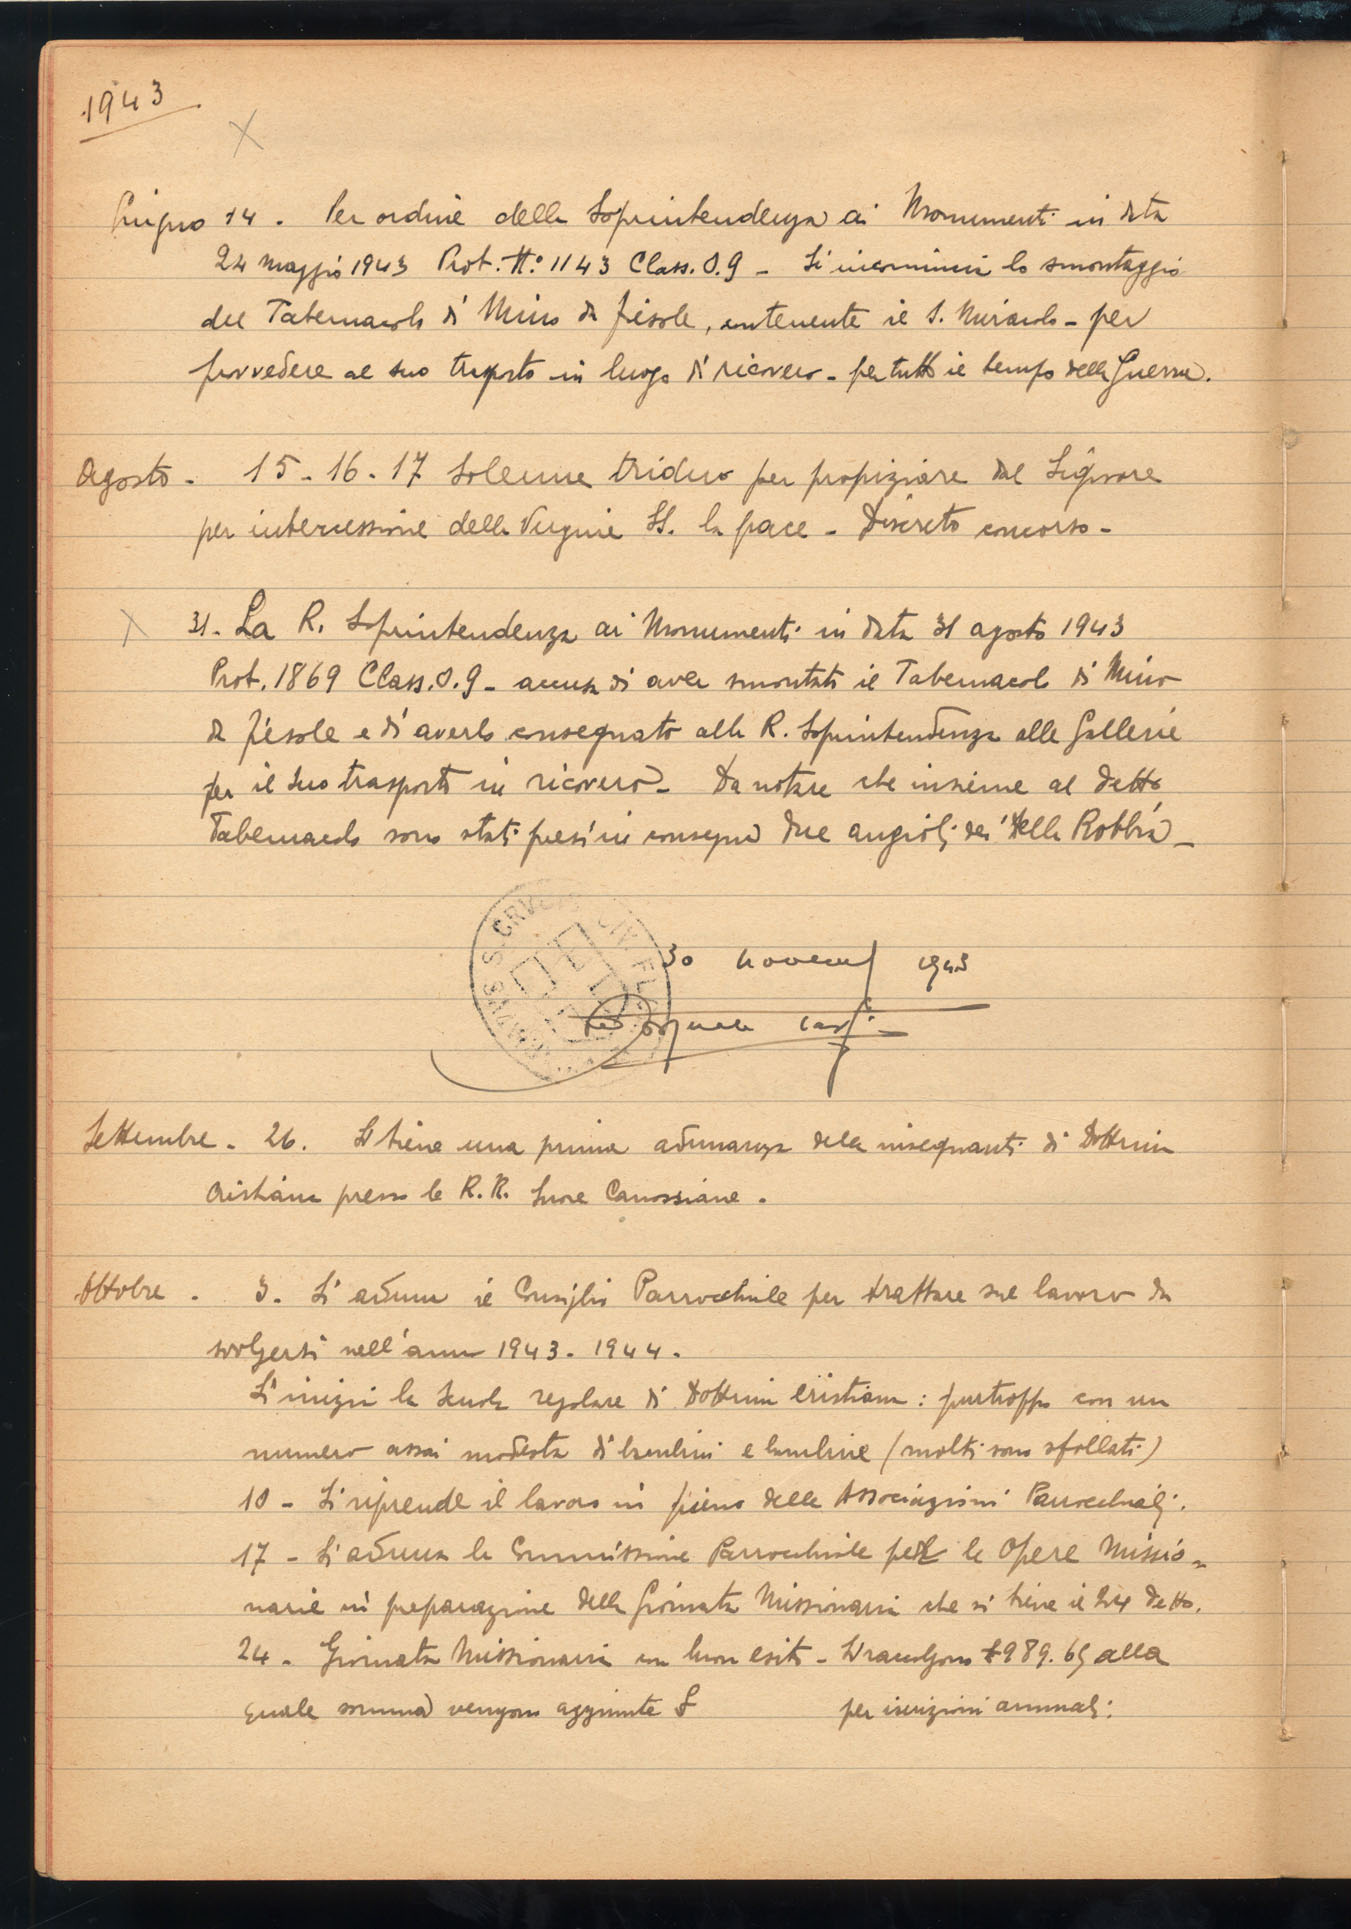 1943
Giugno 14. Per ordine della Soprintendenza ai Monumenti in data
24 maggio 1943 Prot. N.º 1143 Class. O.9 - Si incomincia lo smontaggio
del Tabernacolo di Mino da Fiesole, contenente il S. Miracolo - per
provvedere al suo trasporto in luogo di ricovero - per tutto il tempo della Guerra.
Agosto - 15 - 16 - 17 Solenne triduo per propiziare dal Signore
per intercessione della Vergine SS. la pace - Discreto concorso -
31. La R. Soprintendenza ai Monumenti in data 31 agosto 1943
Prot. 1869 Class. O.9 - accusa di aver smontato il Tabernacolo di Mino
da Fiesole e di averlo consegnato alla R. Soprintendenza alle Gallerie
per il suo trasporto in ricovero - Da notare che insieme al detto
Tabernacolo sono stati presi in consegna due angioli dei Della Robbia -
S. CRUCIS
30 novemb 1943
Settembre - 26. Si tiene una prima adunanza delle insegnanti di Dottrina
Cristiana presso le R.R. Suore Canossiane.
Ottobre - 3. Si aduna il Consiglio Parrocchiale per trattare sul lavoro da
svolgersi nell'anno 1943 - 1944.
Si inizia la Scuola regolare di Dottrina Cristiana: purtroppo con un
numero assai modesto di bambini e bambine (molti sono sfollati)
10 - Si riprende il lavoro in pieno delle Associazioni Parrocchiali.
17 - Si aduna la Commissione Parrocchiale per le Opere Missio-
narie in preparazione della Giornata Missionaria che si tiene il 24 detto.
24 - Giornata Missionaria con buon esito - Si raccolgono £ 989.65 alla
quale somma vengono aggiunte £ per iscrizioni annuali: